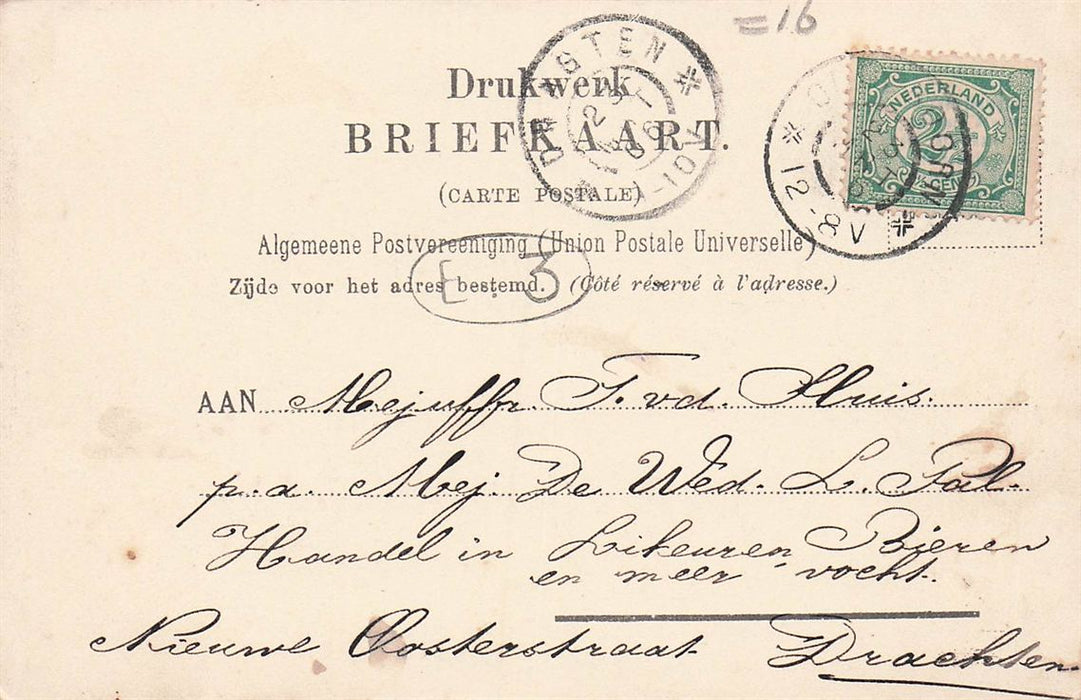 =16
DRAGTEN
Drukwerk
BRIEFKAART.
(CARTE POSTALE)
NEDERLAND
2½
CENT
12-8V
Algemeene Postvereeniging (Union Postale Universelle)
Zijde voor het adres bestemd. (Côté réservé à l'adresse.)
E. 3
AAN Mejuffr. T. vd. Sluis.
p.a. Mej. De Wed. L. Pal.
Handel in Likeuren, Bieren
en meer vocht.
Nieuwe Oosterstraat Drachten